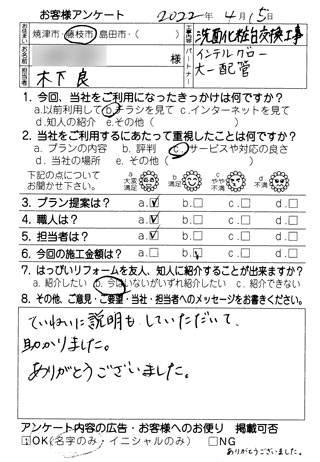 お客様アンケート 2022年4月15日
お住まい 焼津市・藤枝市・島田市・( )
工事内容 洗面化粧台交換工事
お名前 様
パートナー インテルグロー
大一配管
担当者 木下 良
1. 今回、当社をご利用になったきっかけは何ですか?
a.以前利用して b.チラシを見て c.インターネットを見て
d.知人の紹介 e.その他( )
2. 当社をご利用するにあたって重視したことは何ですか?
a. プランの内容 b. 評判 c. サービスや対応の良さ
d. 当社の場所 e. その他( )
下記の点について
お聞かせ下さい。
a 大変満足 b 満足 c やや不満 d 不満
3. プラン提案は? a.☑ b.□ c.□ d.□
4. 職人は? a.☑ b.□ c.□ d.□
5. 担当者は? a.☑ b.□ c.□ d.□
6. 今回の施工金額は? a.□ b.☑ c.□ d.□
7. はっぴいリフォームを友人、知人に紹介することが出来ますか?
a. 紹介したい b. 今はいないがいずれ紹介したい c. 紹介できない
8. その他、ご意見・ご要望・当社・担当者へのメッセージをお書きください。
ていねいに説明も していただいて、
助かりました。
ありがとうございました。
アンケート内容の広告・お客様へのお便り 掲載可否
OK(名字のみ・イニシャルのみ) □NG
ありがとうございました。